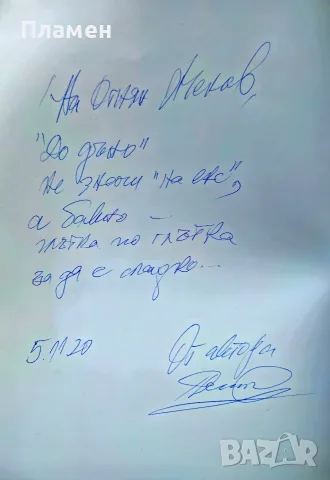 Пламен
На Огнян Женов,
"До дъно"
не значи "на екс",
а бавно —
глътка по глътка
за да е сладко...
5.11.20
От автора
bazar.bg